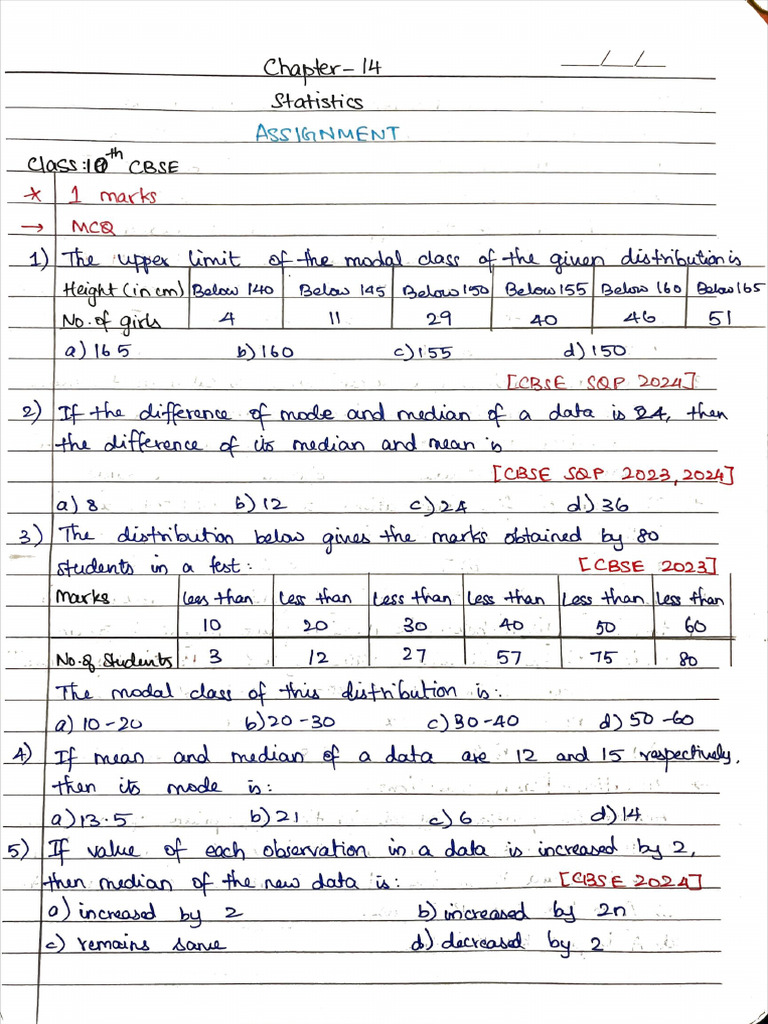 __/__/__
Chapter - 14
Statistics
ASSIGNMENT
Class: 10th CBSE
* 1 marks
→ MCQ
1) The upper limit of the modal class of the given distribution is
Height (in cm) Below 140 Below 145 Below 150 Below 155 Below 160 Below 165
No. of girls 4 11 29 40 46 51
a) 165 b) 160 c) 155 d) 150
[CBSE SQP 2024]
2) If the difference of mode and median of a data is 24, then
the difference of its median and mean is
[CBSE SQP 2023, 2024]
a) 8 b) 12 c) 24 d) 36
3) The distribution below gives the marks obtained by 80
students in a test: [CBSE 2023]
Marks Less than Less than Less than Less than Less than Less than
10 20 30 40 50 60
No. of Students 3 12 27 57 75 80
The modal class of this distribution is:
a) 10-20 b) 20-30 c) 30-40 d) 50-60
4) If mean and median of a data are 12 and 15 respectively,
then its mode is:
a) 13.5 b) 21 c) 6 d) 14
5) If value of each observation in a data is increased by 2,
then median of the new data is: [CBSE 2024]
a) increased by 2 b) increased by 2n
c) remains same d) decreased by 2